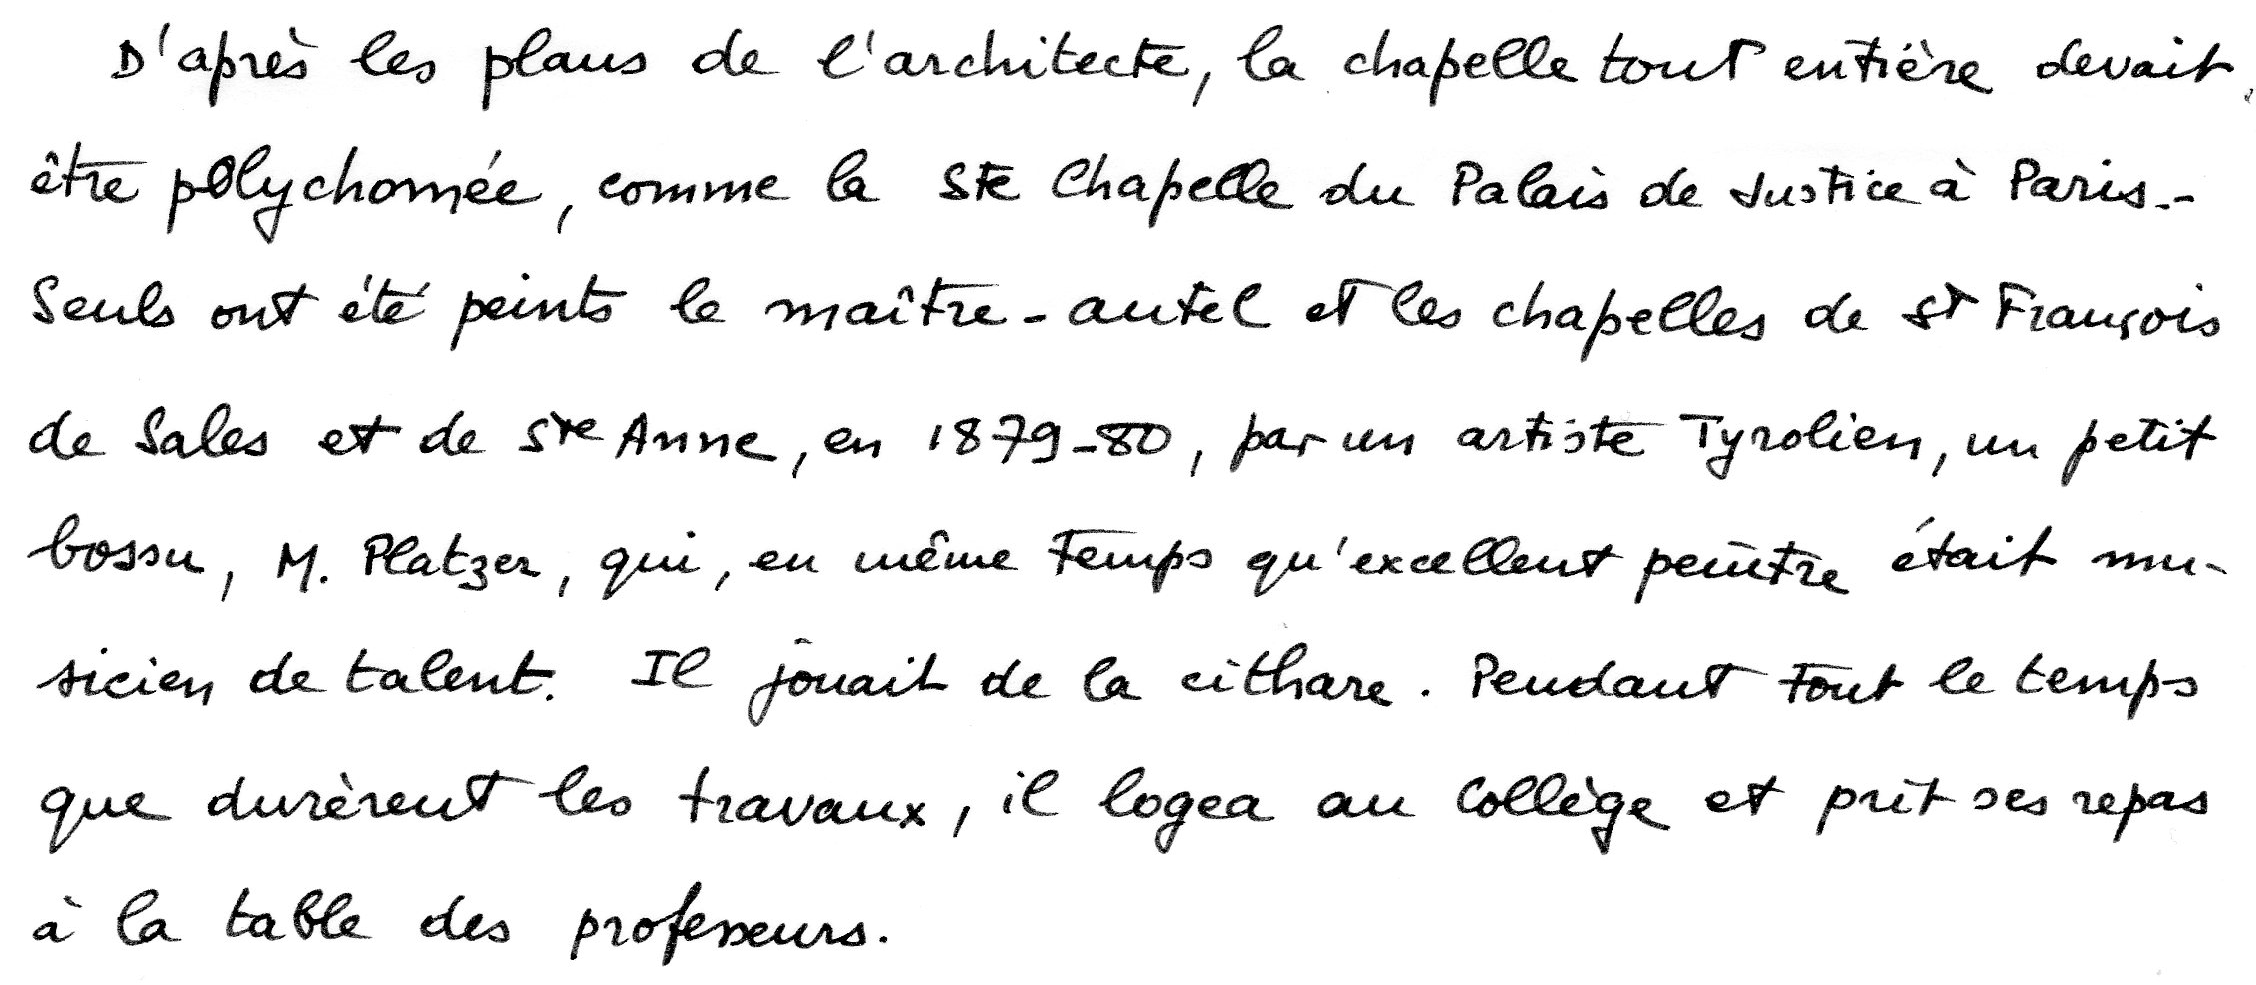 D'après les plans de l'architecte, la chapelle tout entière devait
être polychomée, comme la Ste Chapelle du Palais de Justice à Paris.-
Seuls ont été peints le maître-autel et les chapelles de St François
de Sales et de Ste Anne, en 1879-80, par un artiste Tyrolien, un petit
bossu, M. Platzer, qui, en même temps qu'excellent peintre était mu-
sicien de talent. Il jouait de la cithare. Pendant tout le temps
que durèrent les travaux, il logea au Collège et prit ses repas
à la table des professeurs.